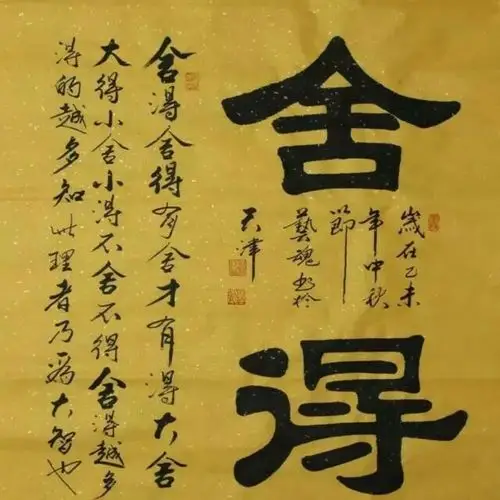 舍得
歲在乙未
年中秋
節
藝魂书於
天津
舍得舍得有舍才有得大舍
大得小舍小得不舍不得舍得越多
得的越多知此理者乃為大智也